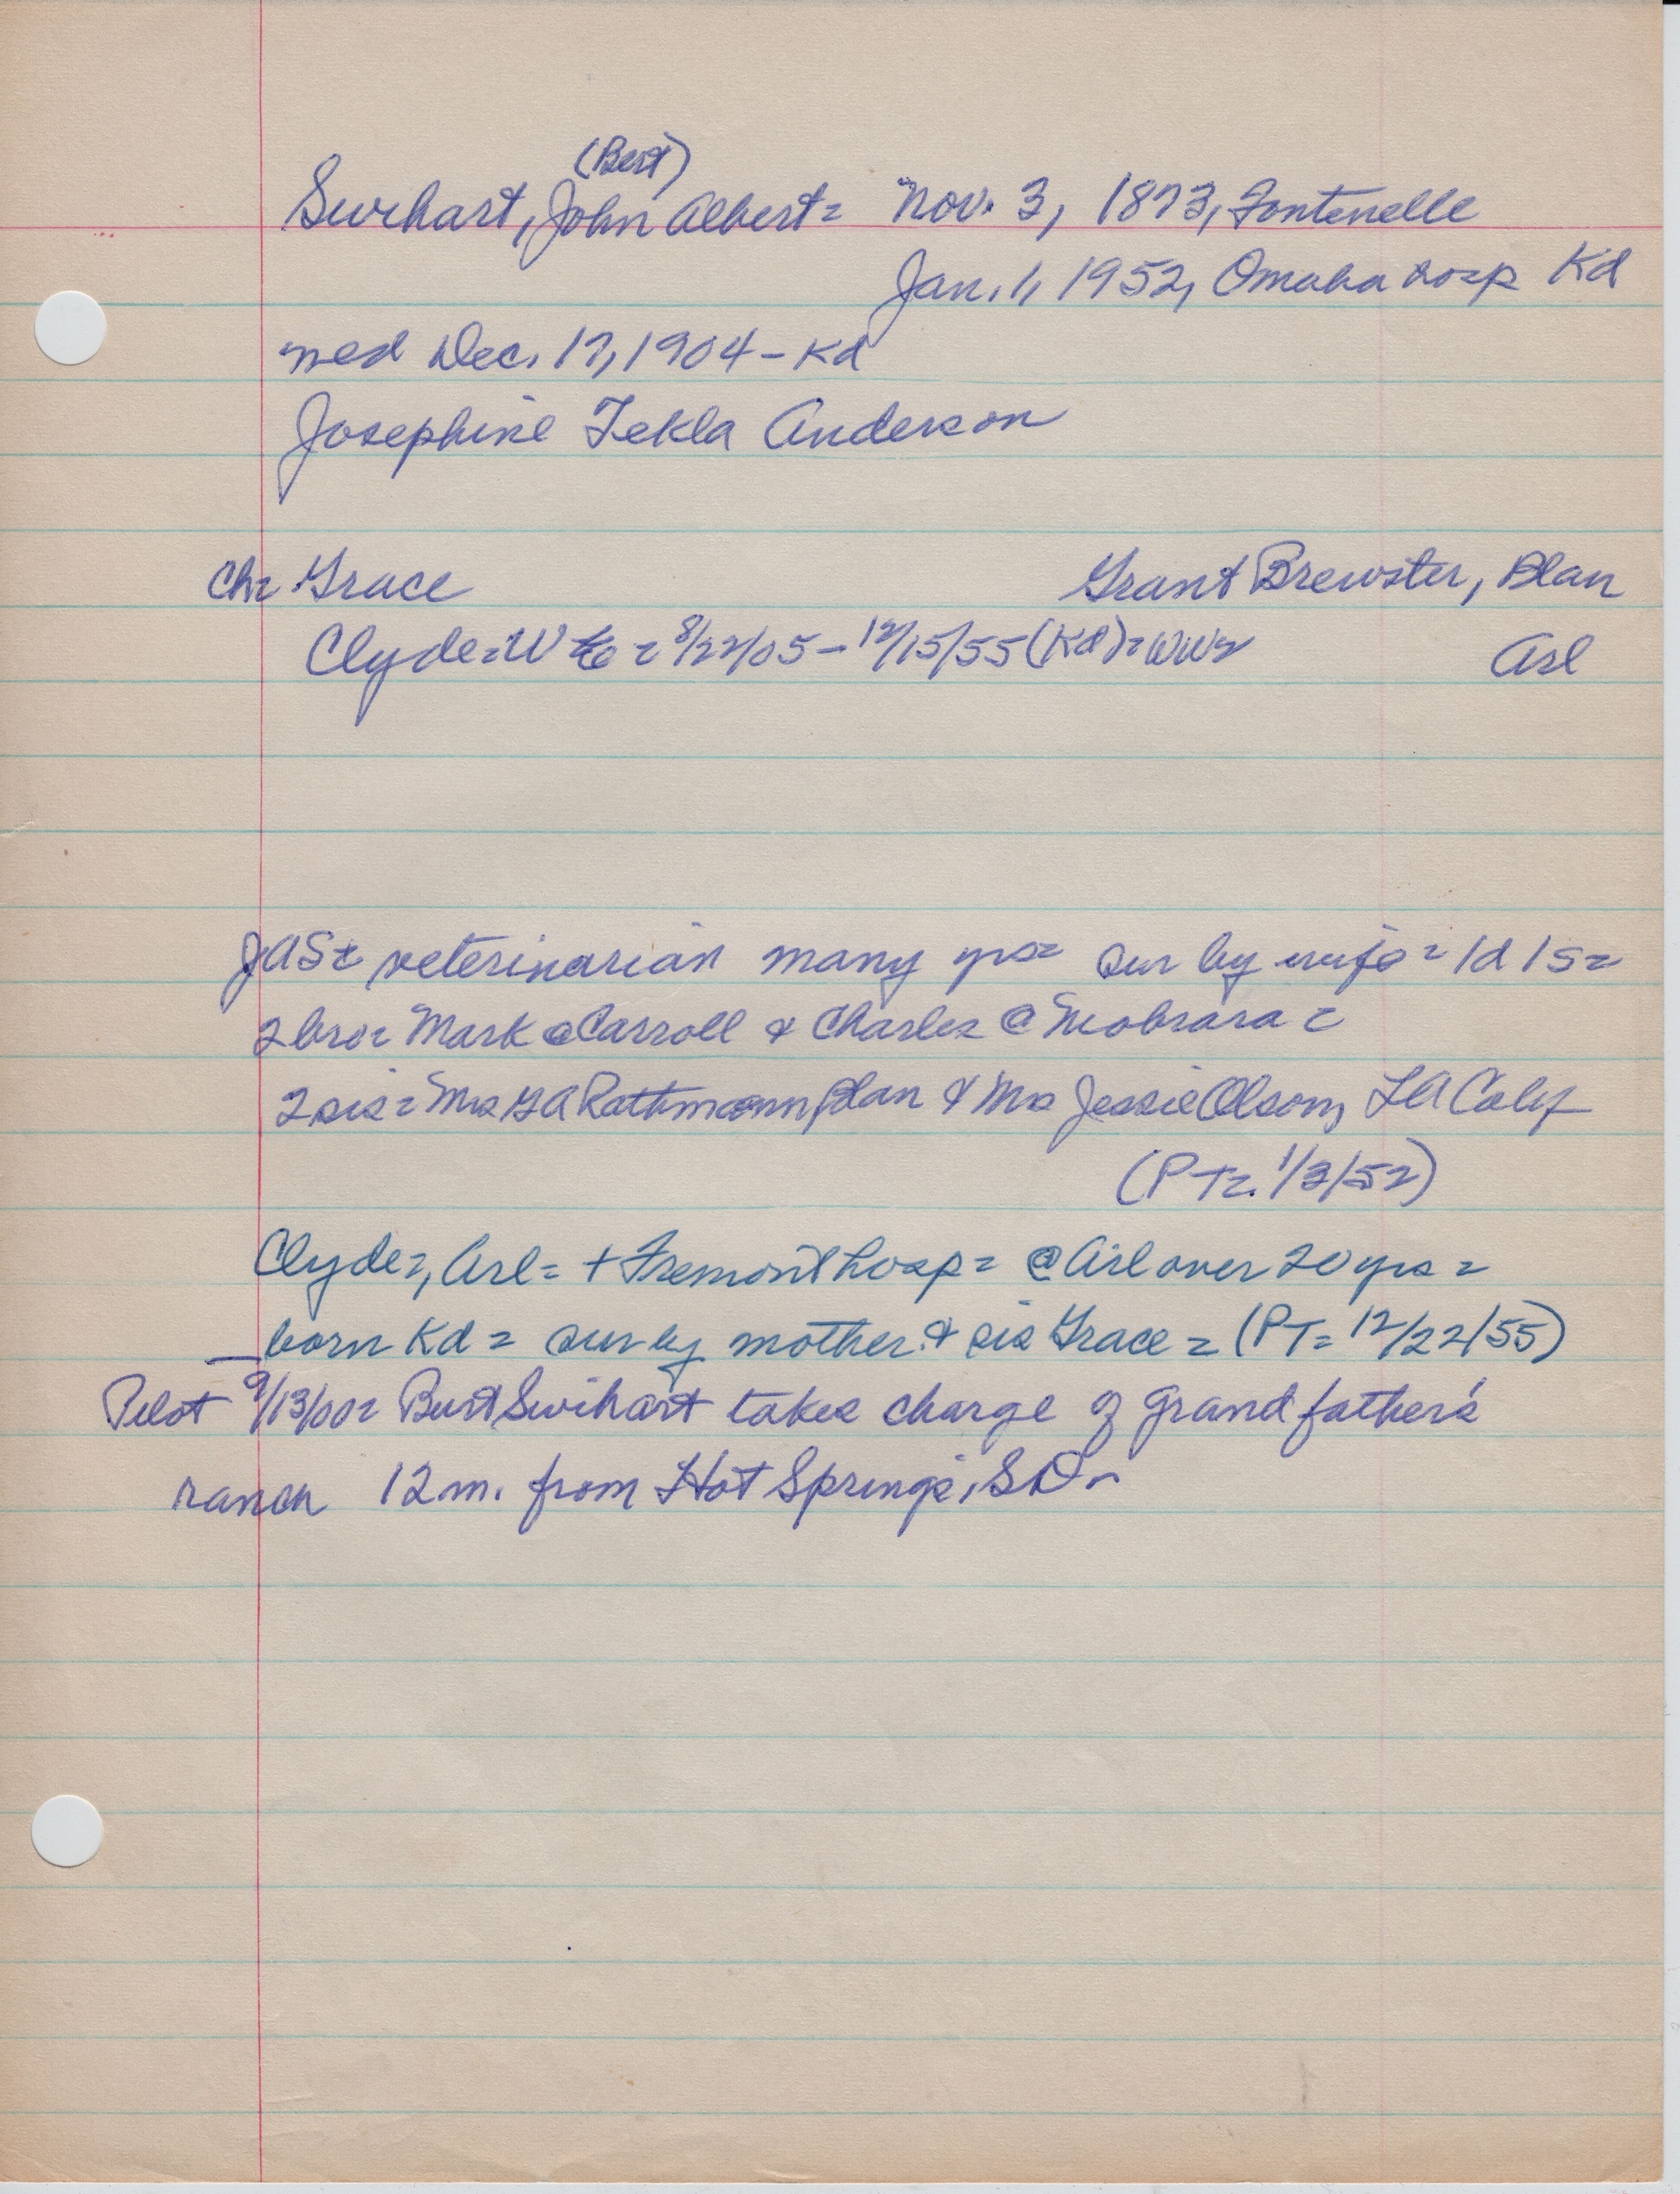 (Bert)
Swihart, John Albert = Nov. 3, 1873, Fontenelle
Jan. 1, 1952, Omaha hosp Kd
med Dec. 17, 1904 - Kd
Josephine Tekla Anderson
Ch = Grace Grant Brewster, Blan
Clyde = W = 8/22/05 - 12/15/55 (Kd) = WW2 Arl
JAS = veterinarian many yrs = sur by wife = 1d 1s =
2 bro = Mark @ Carroll & Charles @ Niobrara =
2 sis = Mrs GA Rathmann, Blan & Mrs Jessie Olson, LA Calif
(PT = 1/3/52)
Clyde =, Arl = + Fremont hosp = @ Arl over 20 yrs =
born Kd = sur by mother & sis Grace = (PT = 12/22/55)
Pilot 9/13/00 = Burt Swihart takes charge of grandfather's
ranch 12 m. from Hot Springs, SD